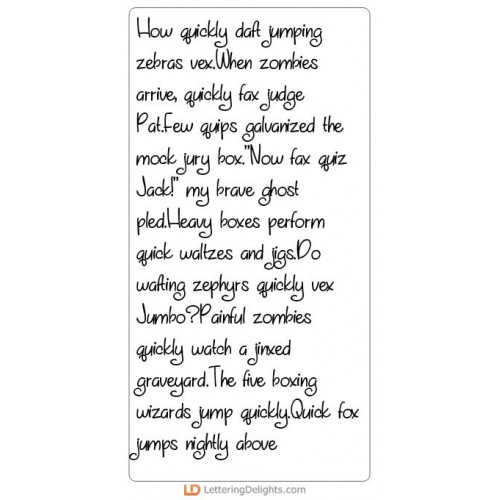 How quickly daft jumping
zebras vex.When zombies
arrive, quickly fax judge
Pat.Few quips galvanized the
mock jury box."Now fax quiz
Jack!" my brave ghost
pled.Heavy boxes perform
quick waltzes and jigs.Do
wafting zephyrs quickly vex
Jumbo?Painful zombies
quickly watch a jinxed
graveyard.The five boxing
wizards jump quickly.Quick fox
jumps nightly above
LD LetteringDelights.com